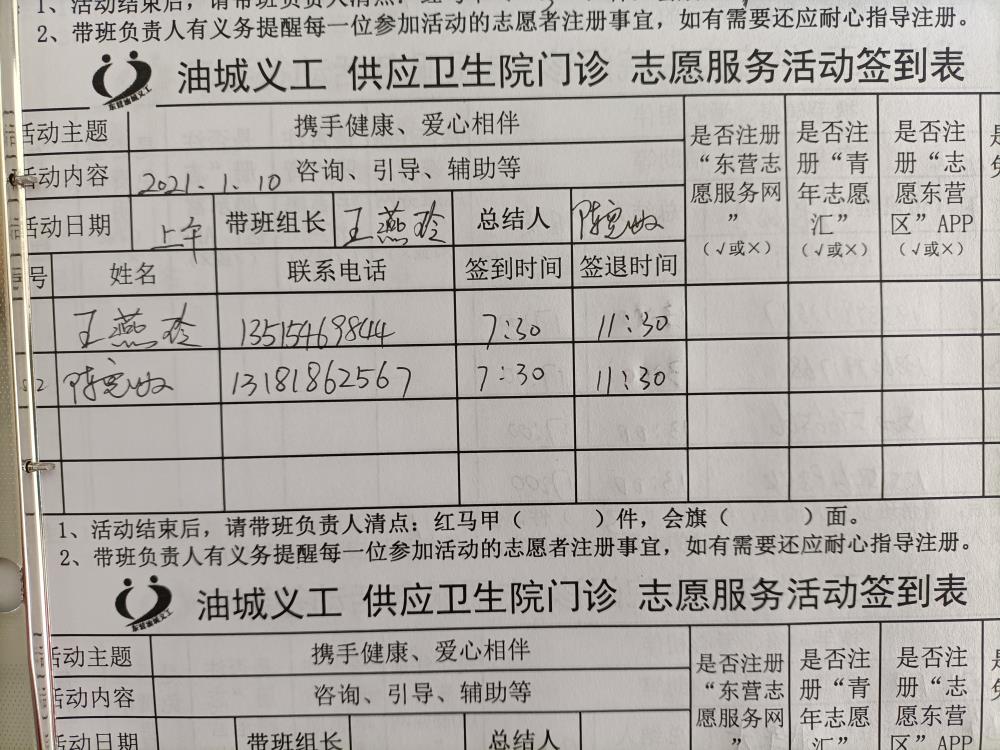 1、活动结束后，请带班负责人清点：红马甲
2、带班负责人有义务提醒每一位参加活动的志愿者注册事宜，如有需要还应耐心指导注册。
东营油城义工
油城义工 供应卫生院门诊 志愿服务活动签到表
活动主题 携手健康、爱心相伴 是否注册“东营志愿服务网”（√或×） 是否注册“青年志愿汇”（√或×） 是否注册“志愿东营区”APP（√或×）
活动内容 2021.1.10 咨询、引导、辅助等
活动日期 上午 带班组长 王燕玲 总结人
号 姓名 联系电话 签到时间 签退时间
王燕玲 13515469844 7:30 11:30
02 13181862567 7:30 11:30
1、活动结束后，请带班负责人清点：红马甲（ ）件，会旗（ ）面。
2、带班负责人有义务提醒每一位参加活动的志愿者注册事宜，如有需要还应耐心指导注册。
东营油城义工
油城义工 供应卫生院门诊 志愿服务活动签到表
活动主题 携手健康、爱心相伴 是否注册“东营志愿服务网” 是否注册“青年志愿汇” 是否注册“志愿东营区”APP
活动内容 咨询、引导、辅助等
活动日期 带班组长 总结人